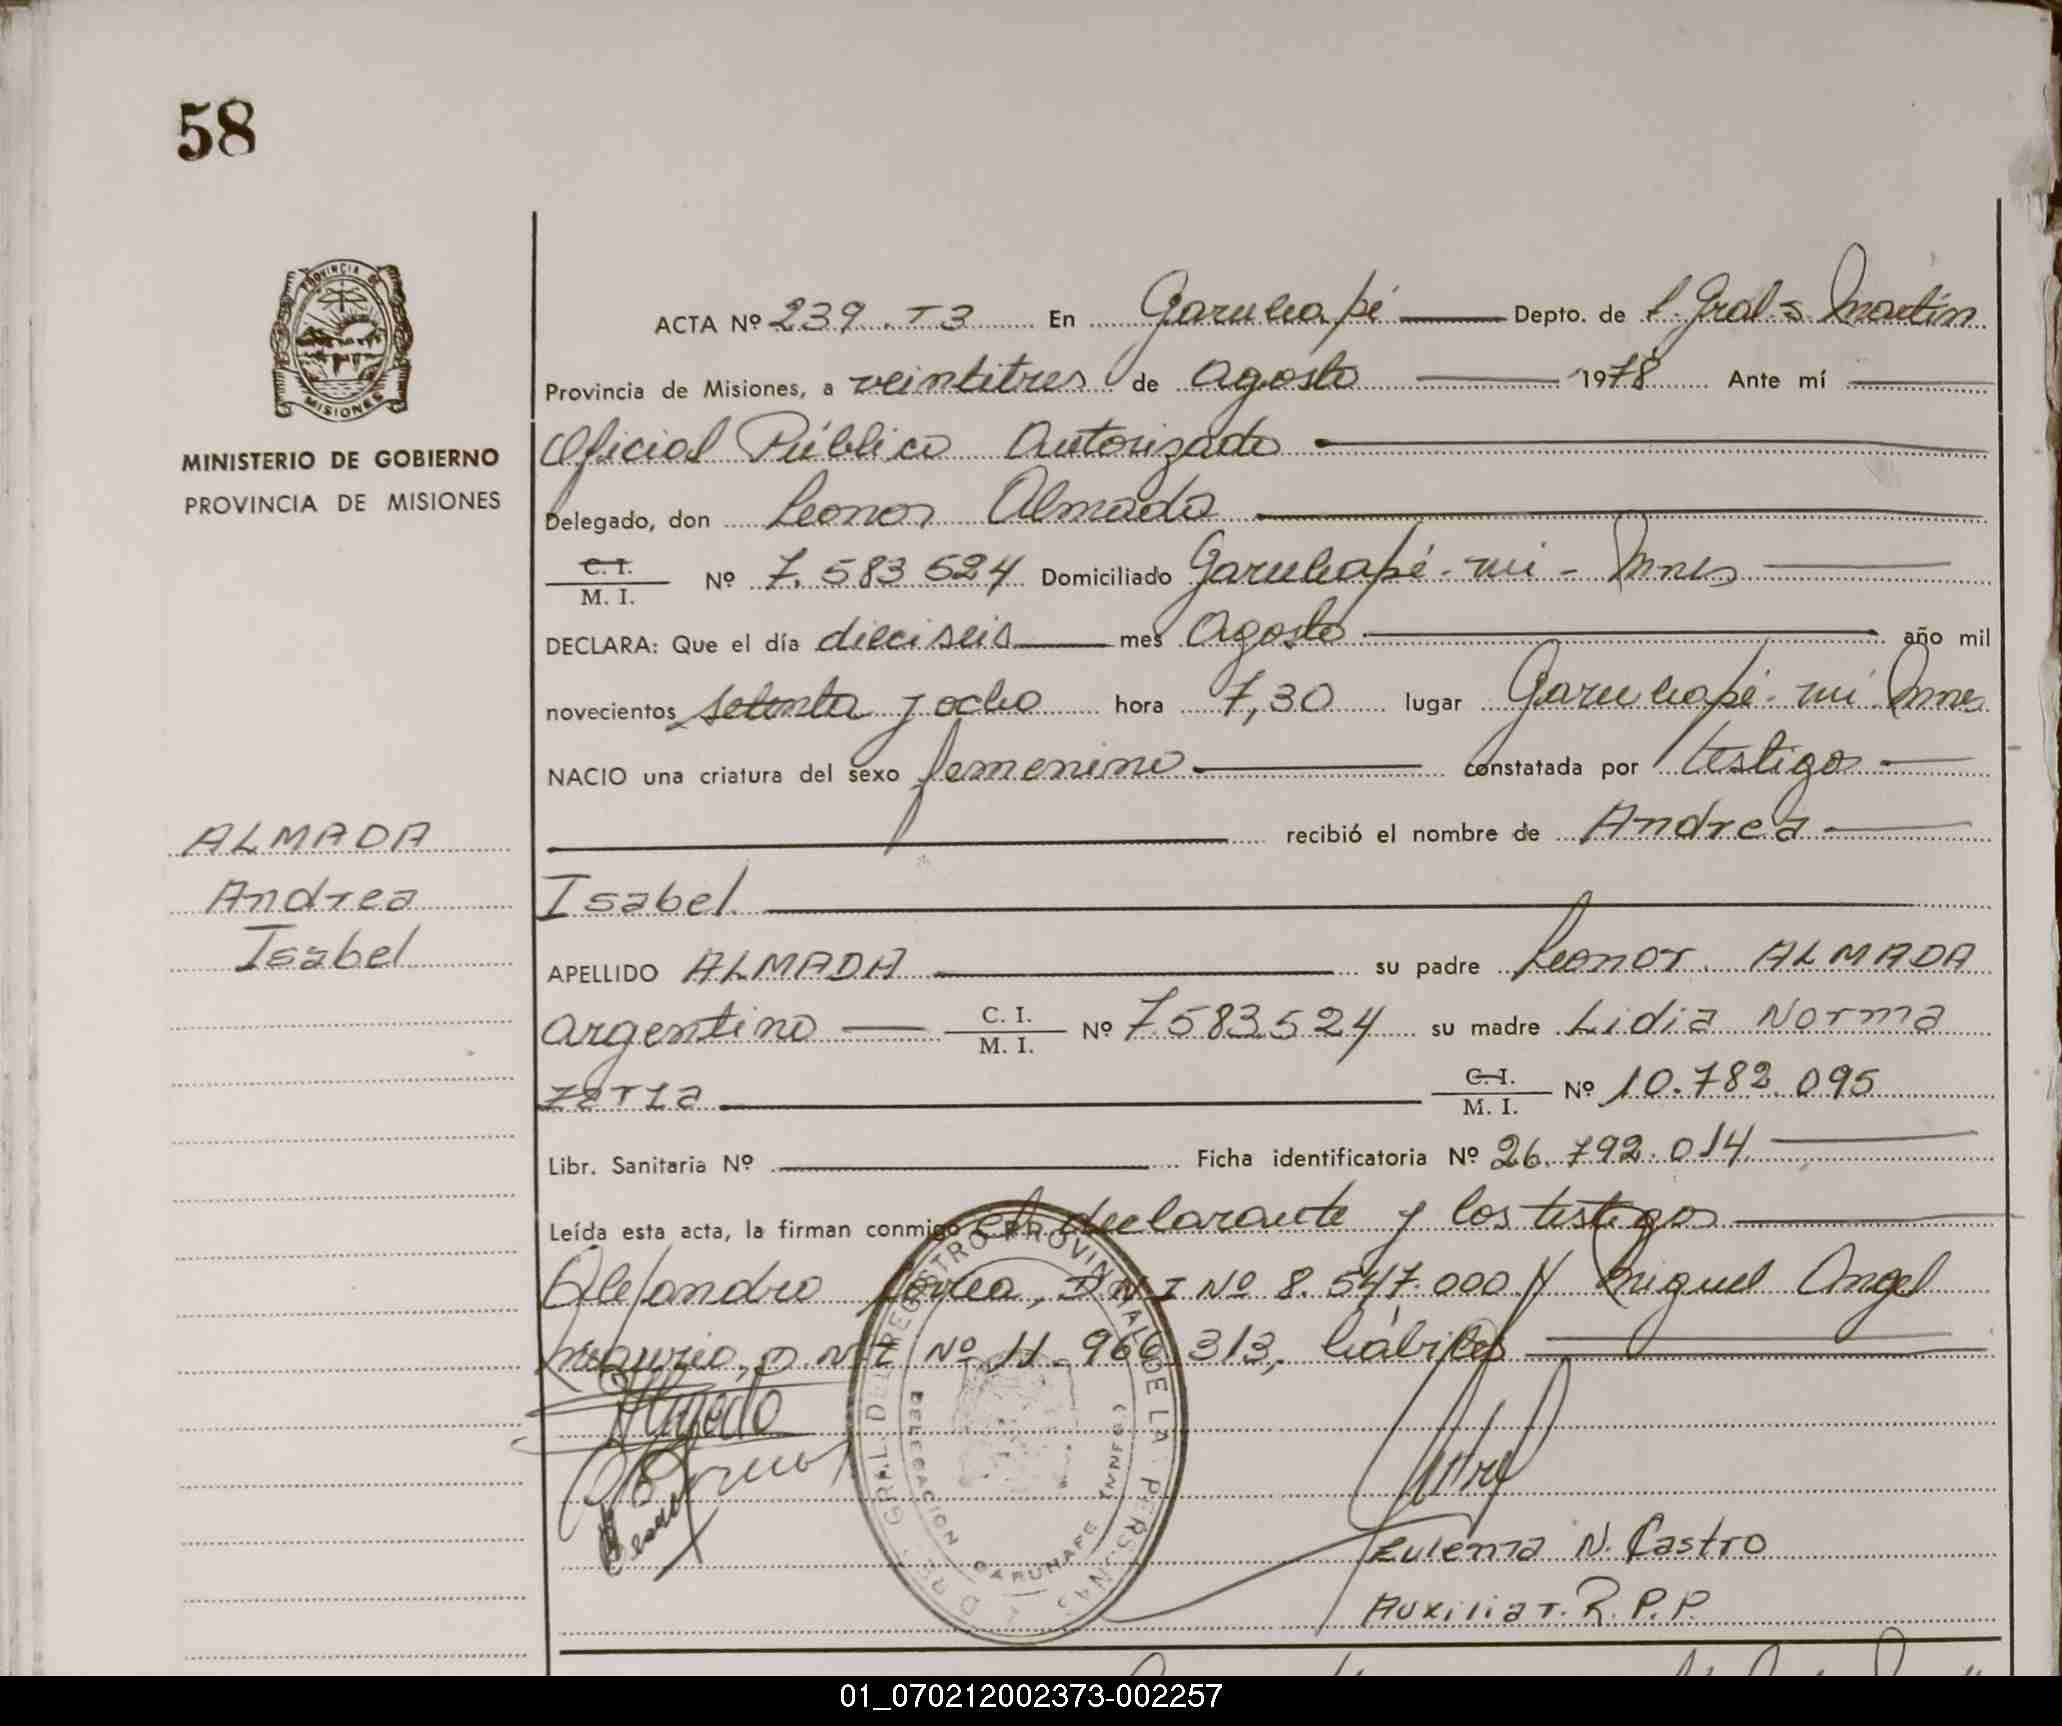 58
PROVINCIA DE
MISIONES
MINISTERIO DE GOBIERNO
PROVINCIA DE MISIONES
ALMADA
Andrea
Isabel
ACTA Nº 239. T3 En Garuhapé Depto. de L. Gral S Martín
Provincia de Misiones, a veintitres de Agosto 1978 Ante mí
Oficial Público Autorizado
Delegado, don Leonor Almada
C. I.
M. I. Nº 7.583 524 Domiciliado Garuhapé-mi - Mnes
DECLARA: Que el día dieciseis mes Agosto año mil
novecientos setenta y ocho hora 7,30 lugar Garuhapé-mi Mnes
NACIO una criatura del sexo femenino constatada por testigos
recibió el nombre de Andrea
Isabel
APELLIDO ALMADA su padre Leonor ALMADA
argentino C. I.
M. I. Nº 7.583.524 su madre Lidia Norma
C. I.
M. I. Nº 10.782.095
Libr. Sanitaria Nº Ficha identificatoria Nº 26.792.014
Leída esta acta, la firman conmigo el declarante y los testigos
Alejandro Correa, DNI Nº 8.547.000 y Miguel Angel
D.N.I Nº 11.966.313, hábiles
GRAL. DEL REGISTRO PROVINCIAL DE LAS PERSONAS
DELEGACION GARUHAPE
Eulema N. Castro
Auxiliar. R. P. P.
01_070212002373-002257